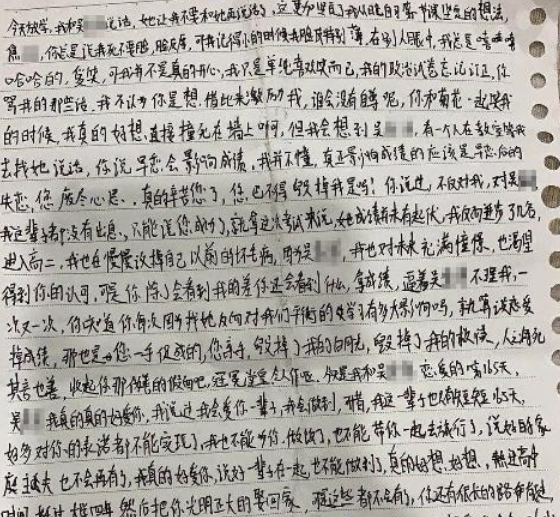 今天放学，我和吴 说话，她让我不要和她再说话了，这更加坚定了我从晚自习第一节课坚定的想法，
焦 ，你总是说我死不要脸，脸皮厚，可我记得小的时候我脸皮特别薄，在别人眼中，我总是嘻嘻哈
哈哈的，傻笑，可我并不是真的开心，我只是单纯喜欢笑而已，我的政治试卷忘记订正，你
骂我的那些话，我不认为你是想借此来激励我，谁会没有自尊呢，你和菊花一起笑我
的时候，我真的好想直接撞死在墙上啊，但我会想到吴 ，有一个人在教室等我
去找她说话，你说早恋会影响成绩，我并不懂，真正影响成绩的应该是早恋后的
失恋，您 费尽心思，真的辛苦您了，您也不得毁掉我是吗？你说过，不反对我，对吴
我这辈子都没有出息，只能说你成功了，就拿这次考试来说，她成绩并未有起伏，我反而进步了几名，
进入高二，我也在慢慢改掉自己以前的坏毛病，因为吴 ，我也对未来充满憧憬，也渴望
得到你的认可，可是你除了会看到我的差你还会看到什么，拿成绩，逼着吴 不理我，一
次又一次，你知道你每次因为找她反向对我们平衡的 学习有多大影响吗，就算谈恋爱
掉成绩，那也是您一手促成的，您亲手毁掉了我的白月光，毁掉了我的救赎，人之将死
其言也善，收起你那 的假面吧，还冕堂皇令人作呕，今是我和吴 恋爱的第165天，
吴 我真的真的好爱你，我说过我会爱你一辈子，我会做到，可惜，我这一辈子也只有短短165天，
好多对你的承诺都不能实现了，我也不能为你做饭了，也不能带你一起去旅行了，说好的家
庭主夫也不会再有了，我真的好爱你，说好一辈子在一起也不能做到了，真的好想，好想，熬过高中
时间 熬过 四年 然后把你光明正大的娶回家，可这些都不会有了，你还有很长的路都能走